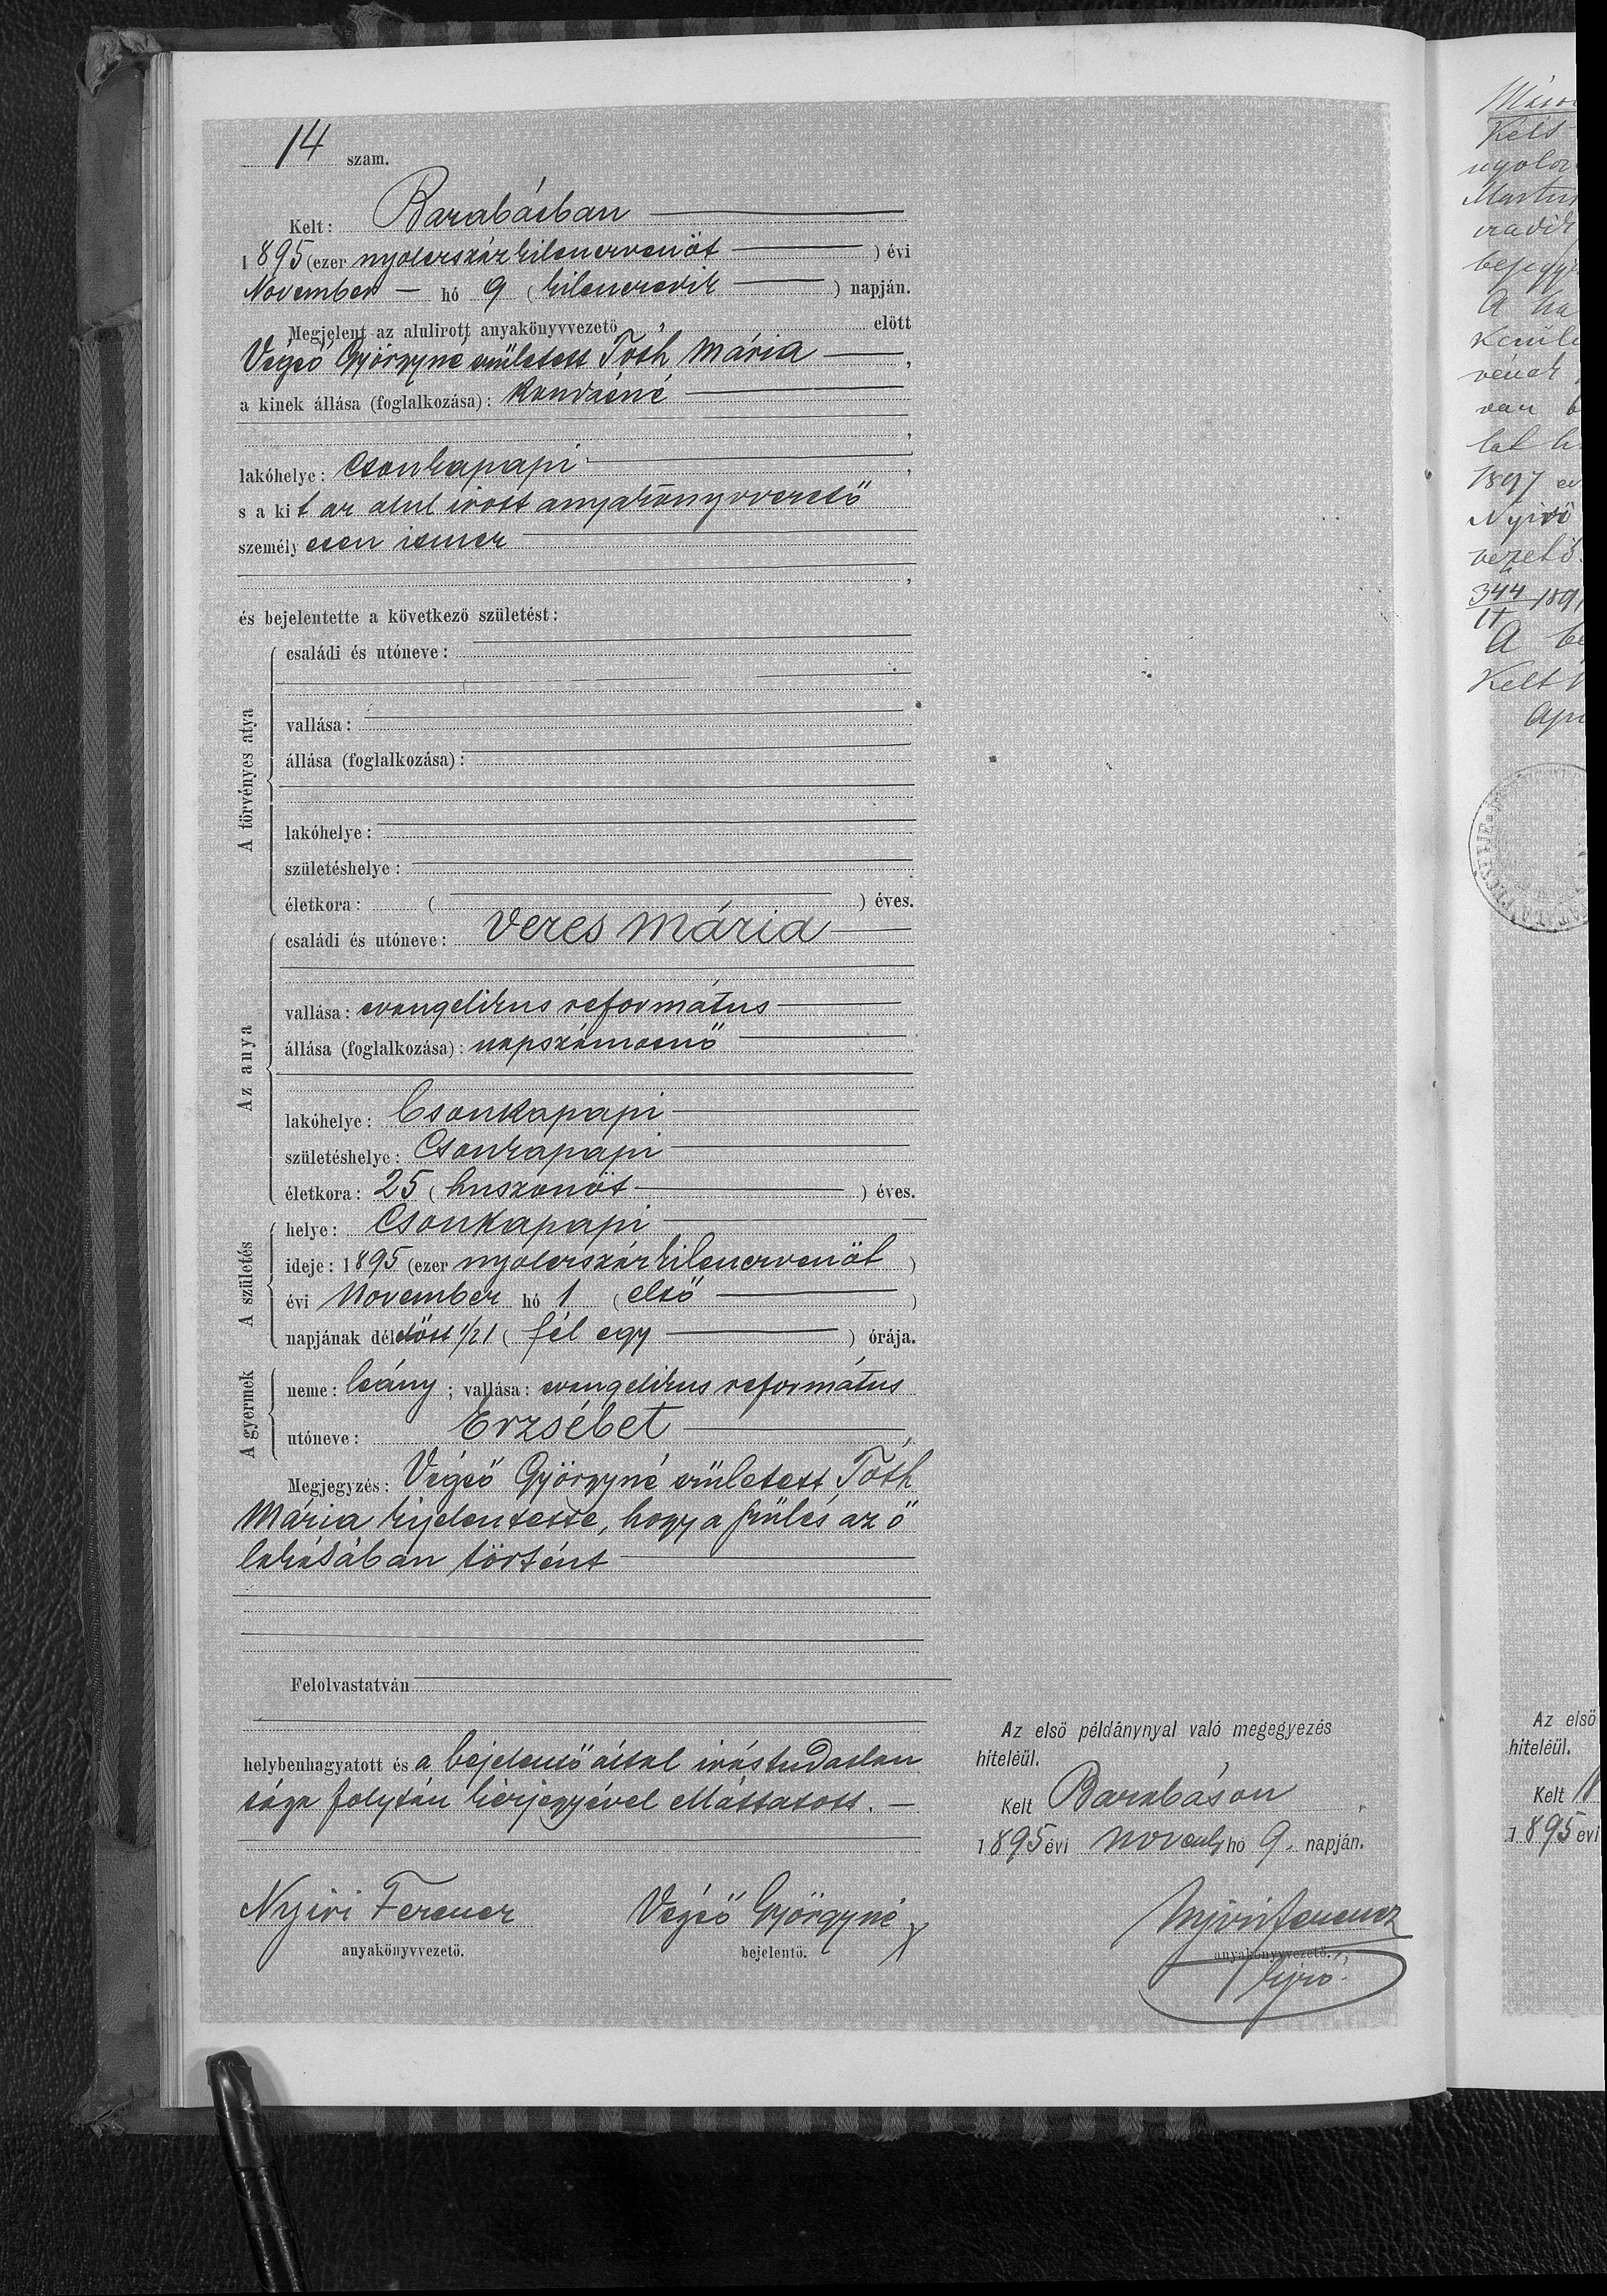 14 szam.
Kelt: Barabásban
1895 (ezer nyolczszázkilenczvenöt ) évi
November hó 9 ( kilenczedik ) napján.
Megjelent az alulirott anyakönyvvezető , előtt
Végső Györgyné született Tóth Mária ,
a kinek állása (foglalkozása): kondásné
,
lakóhelye: Csonkapapi ,
s a kit az alul irott anyakönyvvezető
személyesen ismer
,
és bejelentette a következő születést:
A törvényes atya
családi és utóneve:
(
vallása:
állása (foglalkozása):
lakóhelye:
születéshelye:
életkora: ( ) éves.
Az anya
családi és utóneve: Veres Mária
vallása: evangelikus református
állása (foglalkozása): napszámosnő
lakóhelye: Csonkapapi
születéshelye: Csonkapapi
életkora: 25 ( huszonöt ) éves.
A születés
helye: Csonkapapi
ideje: 1895 (ezer nyolczszázkilenczvenöt )
évi November hó 1 ( első )
napjának délelőtt 1/21 ( fél egy ) órája.
A gyermek
neme: leány ; vallása: evangelikus református
utóneve: Erzsébet ,
Megjegyzés: Végső Györgyné született Tóth
Mária kijelentette, hogy a szülés az ő
lakásában történt
Felolvastatván
helybenhagyatott és a bejelentő által irástudatlan
sága folytán kézjegyével elláttatott.
Nyiri Ferencz
anyakönyvvezető.
Végső Györgyné x
bejelentő.
Az első példánynyal való megegyezés
hiteléül.
Kelt Barabáson ,
1895 évi novemb hó 9. napján.
Nyiri Ferencz
anyakönyvvezető.
Kelt
nyolcz
A
van
1897
Nyiri
vezető
344 1897
A
Kelt
Az első
hiteléül.
Kelt
1895 évi